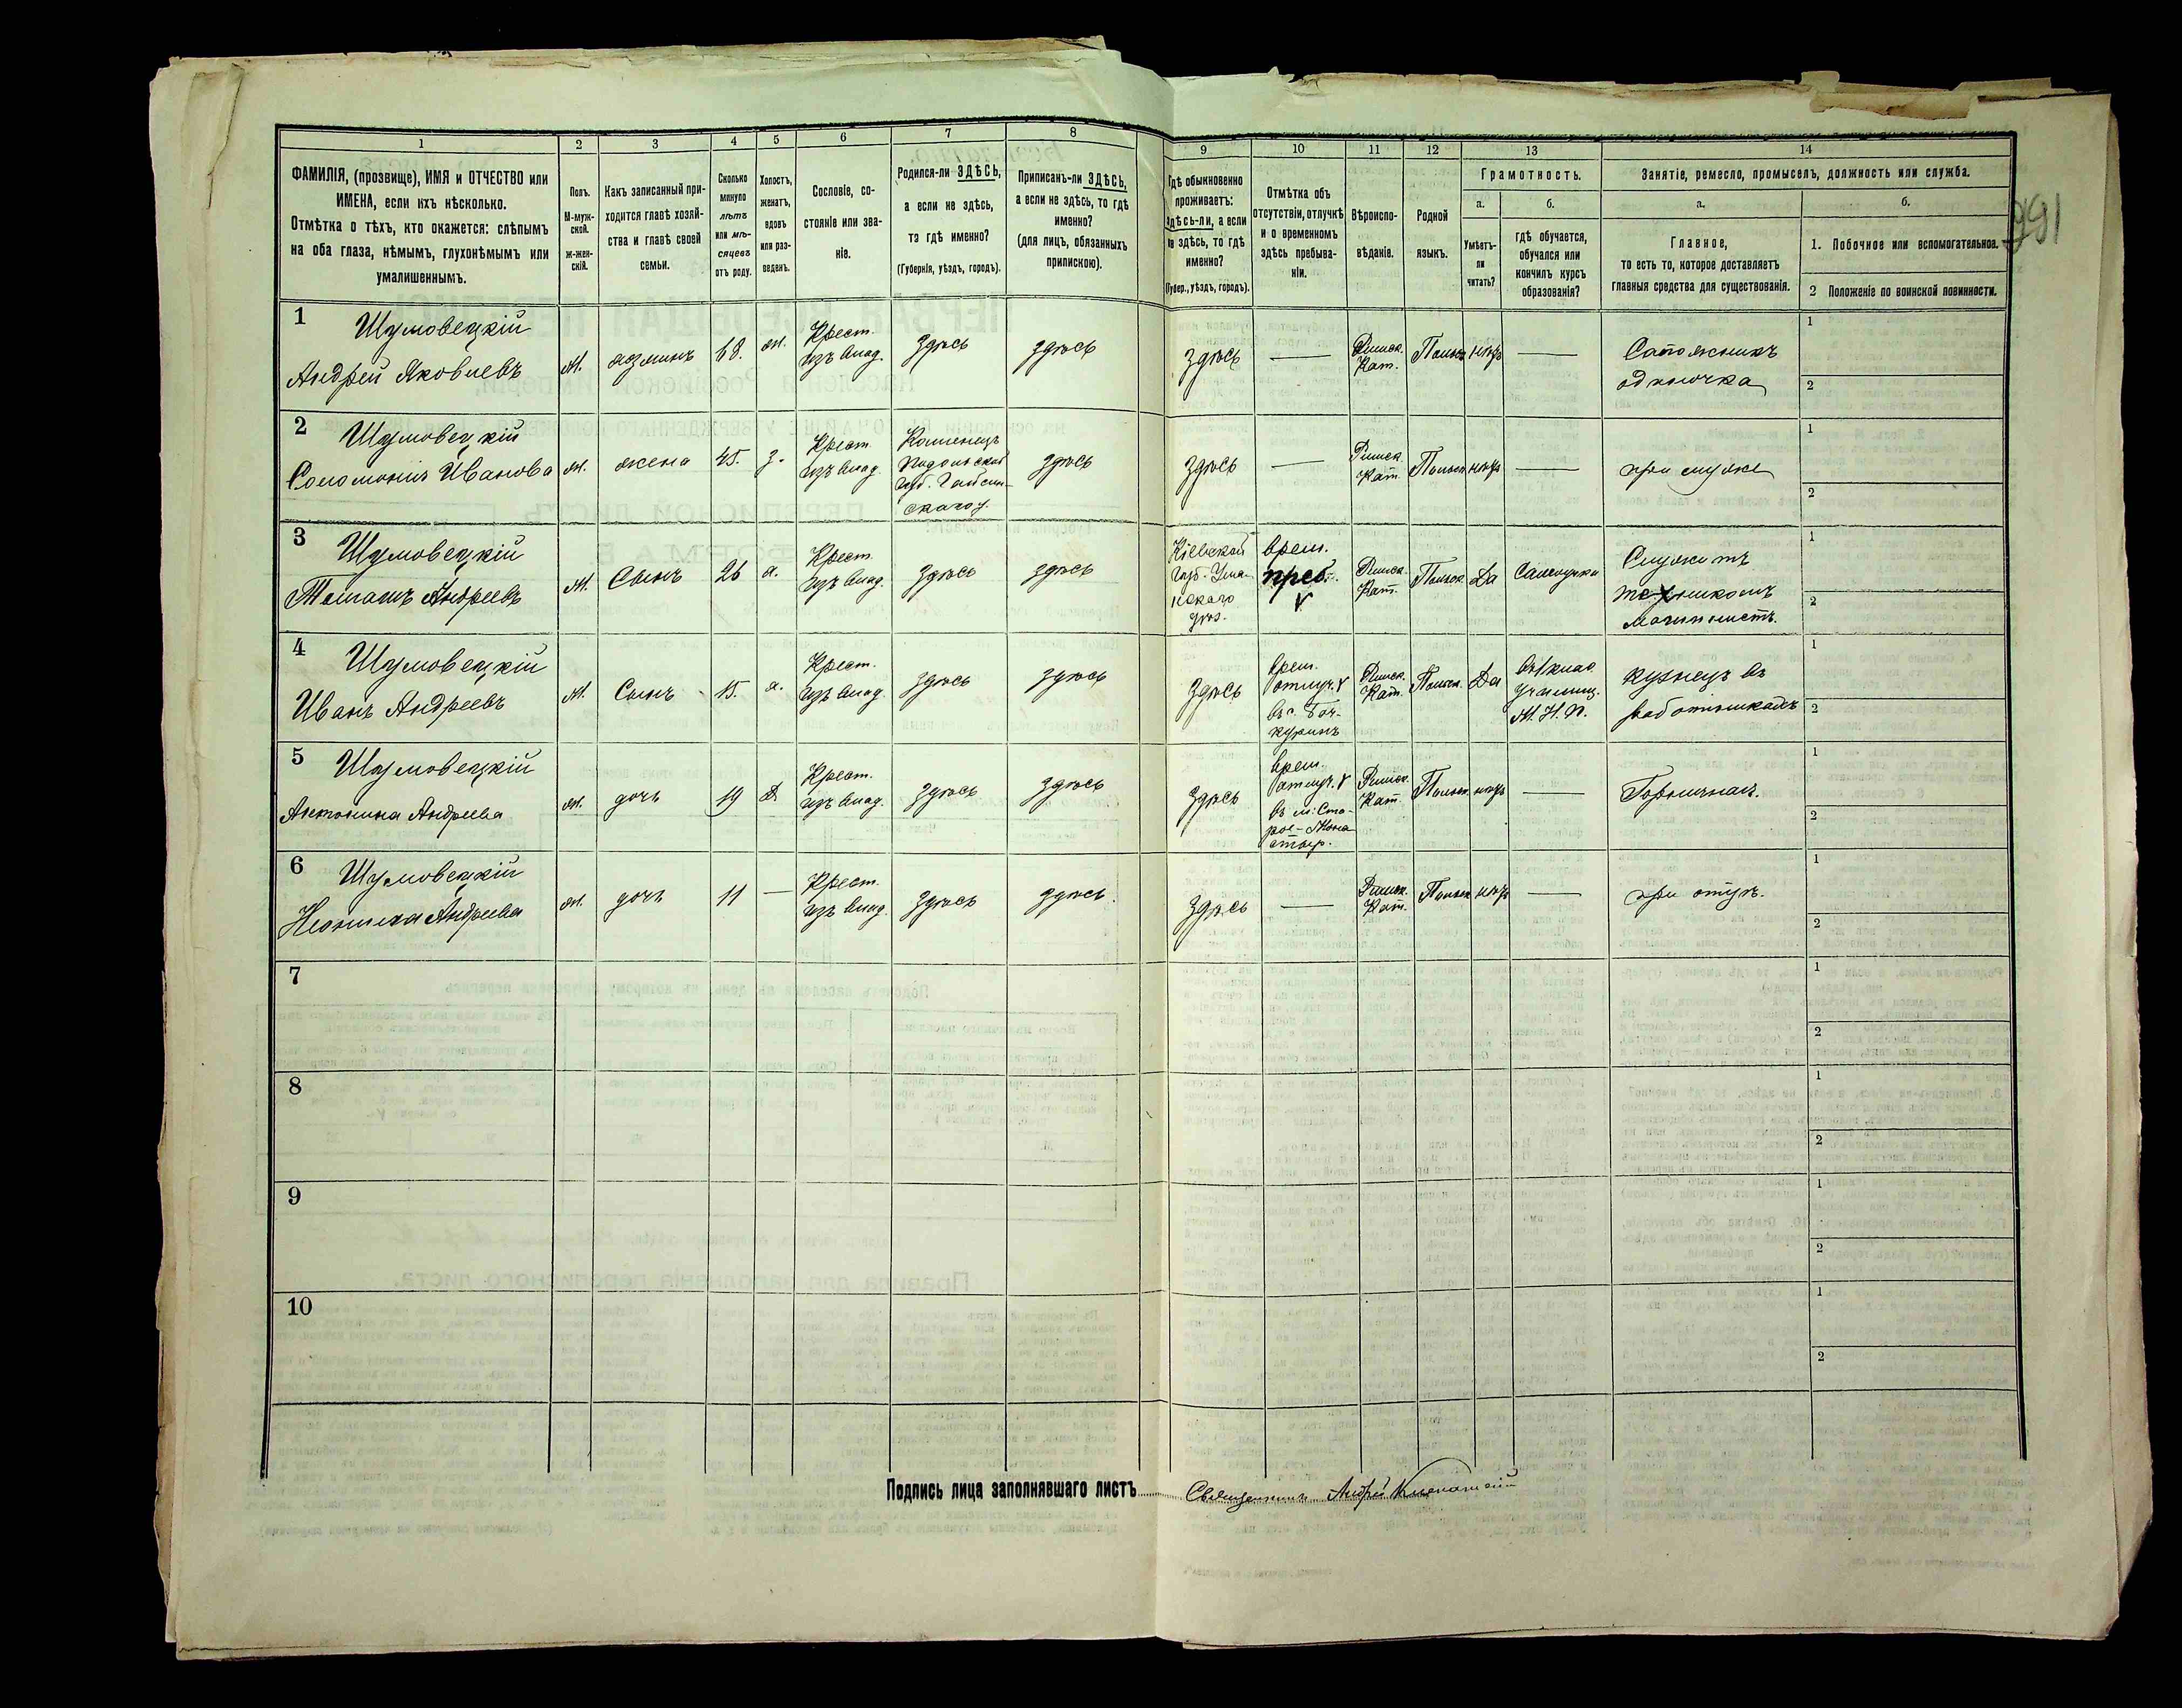 1
2
3
4
5
6
7
8
ФАМИЛІЯ, (прозвище), ИМЯ и ОТЧЕСТВО или
ИМЕНА, если ихъ нѣсколько.
Отмѣтка о тѣхъ, кто окажется: слѣпымъ
на оба глаза, нѣмымъ, глухонѣмымъ или
умалишеннымъ.
Полъ.
М-муж-
ской.
ж-жен-
скій.
Какъ записанный при-
ходится главѣ хозяй-
ства и главѣ своей
семьи.
Сколько
минуло
лѣтъ
или мѣ-
сяцевъ
отъ роду.
Холостъ,
женатъ,
вдовъ
или раз-
веденъ.
Сословіе, со-
стояніе или зва-
ніе.
Родился-ли ЗДѢСЬ,
а если не здѣсь,
то гдѣ именно?
(Губернія, уѣздъ, городъ).
Приписанъ-ли ЗДѢСЬ,
а если не здѣсь, то гдѣ
именно?
(для лицъ, обязанныхъ
припискою).
9
10
11
12
13
14
Гдѣ обыкновенно
проживаетъ:
здѣсь-ли, а если
не здѣсь, то гдѣ
именно?
(Губер., уѣздъ, городъ).
Отмѣтка объ
отсутствіи, отлучкѣ
и о временномъ
здѣсь пребыва-
ніи.
Вѣроиспо-
вѣданіе.
Родной
языкъ.
Грамотность.
а.
Умѣетъ-
ли
читать?
б.
гдѣ обучается,
обучался или
кончилъ курсъ
образованія?
Занятіе, ремесло, промыселъ, должность или служба.
а.
Главное,
то есть то, которое доставляетъ
главныя средства для существованія.
б.
1. Побочное или вспомогательное.
2 Положеніе по воинской повинности.
991
1 Шумовецкій
Андрей Яковлевъ
м.
хозяинъ
68.
ж.
Крест.
изъ влад.
здѣсь
здѣсь
здѣсь
—
Римск.
Кат.
Польск
нѣтъ
—
Сапожникъ
одиночка
1
2
2 Шумовецкій
Соломонія Иванова
ж.
жена
45.
з.
Крест
изъ влад
Каменецъ
Подольской
губ. Гайсин-
скаго у.
здѣсь
здѣсь
—
Римск.
Кат.
Польск
нѣтъ
—
при мужѣ
1
2
3 Шумовецкій
Томашъ Андреевъ
м.
Сынъ
26
х.
Крест.
изъ влад.
здѣсь
здѣсь
Кіевской
губ. Ума-
нскаго
уѣз.
врем.
преб.
V
Римск.
Кат.
Польск
Да
Самоучка
Служитъ
машинистъ.
1
2
4 Шумовецкій
Иванъ Андреевъ
м.
Сынъ
15.
х.
Крест.
изъ влад.
здѣсь
здѣсь
здѣсь
врем.
отлуч. V
Римск.
Кат.
Польск.
Да
въ 1 клас
училищ.
М. Н. П.
кузнецъ въ
работникахъ
1
2
5 Шумовецкій
Антонина Андреева
ж.
дочь
19
д.
Крест.
изъ влад.
здѣсь
здѣсь
здѣсь
врем.
отлуч. V
въ м. Ста-
рое-Мона
стыр.
Римск.
Кат.
Польск
нѣтъ
—
Горничная.
1
2
6 Шумовецкій
Андреева
ж.
дочь
11
—
Крест.
изъ влад.
здѣсь
здѣсь
здѣсь
—
Римск.
Кат.
Польск
нѣтъ
—
при отцѣ.
1
2
7
1
2
8
1
2
9
1
2
10
1
2
Подпись лица заполнявшаго листъ
Священникъ Андрей